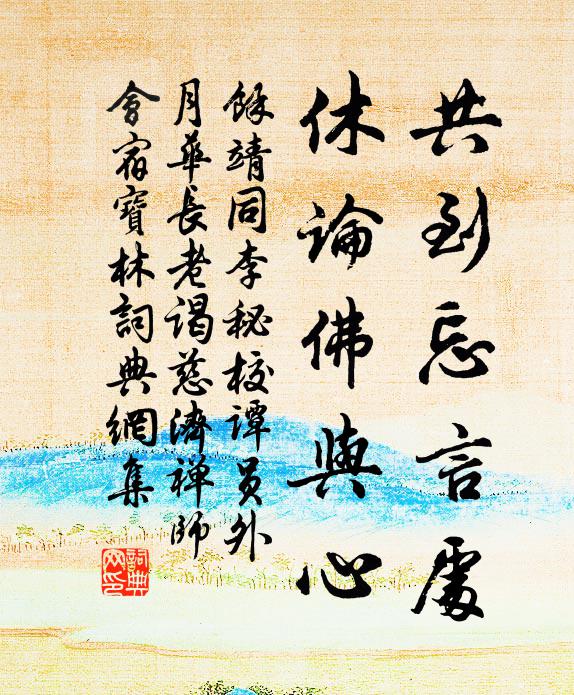 共到忘言處
休論佛與心
餘靖同李秘校譚員外
月華長老謁慈濟禪師
會宿寶林詞典網集
詞典
网印